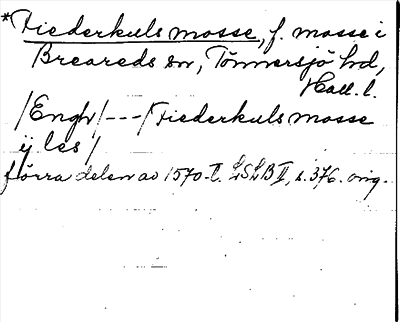 *Fiederkuls mosse, f. mosse i
Breareds sn, Tönnersjö hd,
Hall. l.
/Engh/---/Fiederkuls mosse
ij les/
förra delen av 1570-t. LSLB II, s. 376. orig.